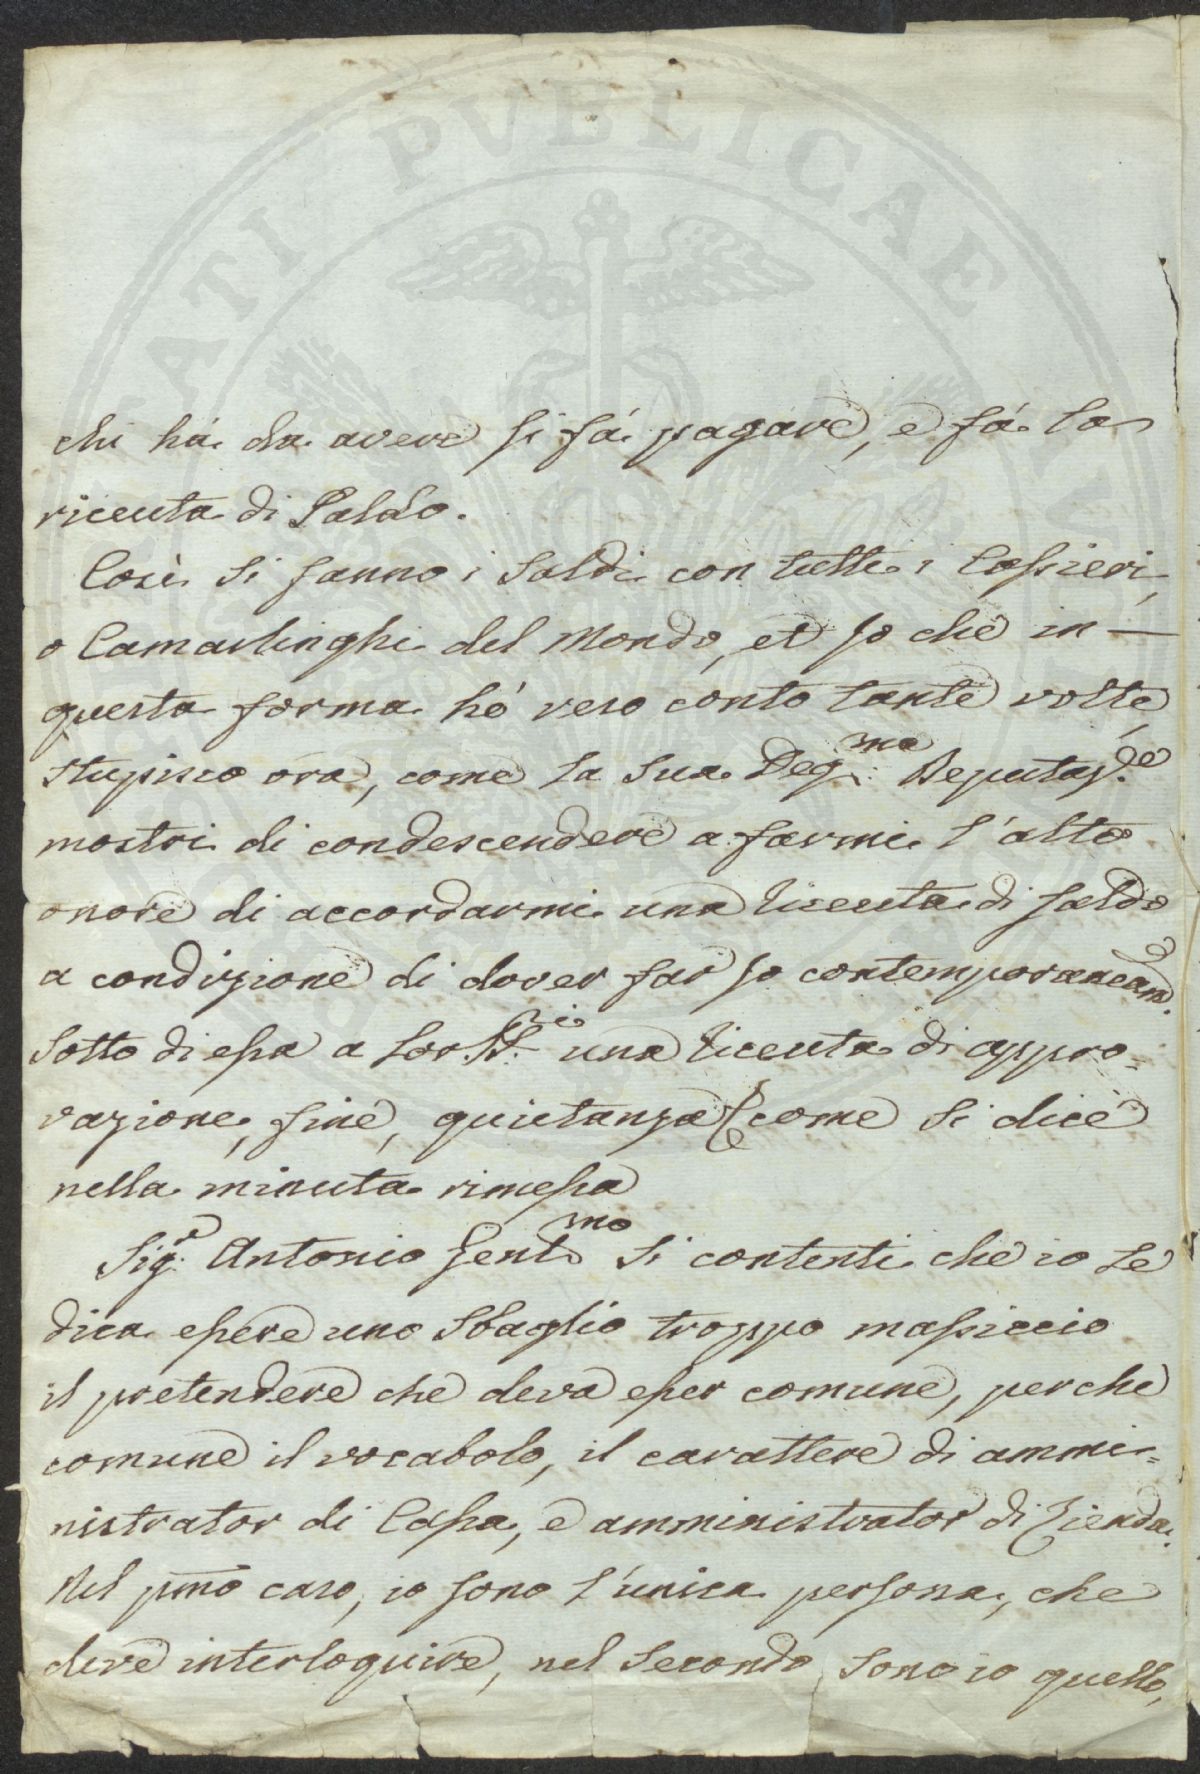 PUBLICAE
chi há da avere si fá pagare, e fá la
riceuta di Saldo.
Così si fanno i Saldi con tutti i Cassieri,
o Camarlinghi del Mondo, et Io che in
questa forma hó reso conto tante volte,
stupisco ora, come la Sua Deg.ma Deputaz.e
mostri di condescendere a farmi l'alto
onore di accordarmi una riceuta di saldo
a condizione di dover far Io contemporaneam.e
Sotto di essa a Lor SS.ri una riceuta di appro=
vazione, fine, quietanza (come si dice
nella minuta rimessa
Sig.r Antonio Gent.mo Si contenti che io Le
dica essere uno Sbaglio troppo massiccio
il pretendere che deva esser comune, perche
comune il vocabolo, il carattere di ammi=
nistrator di Cassa, e amministrator di Zienda.
Nel pmo caso, io sono l'unica persona, che
deve interloquire, nel Secondo Sono io quello,